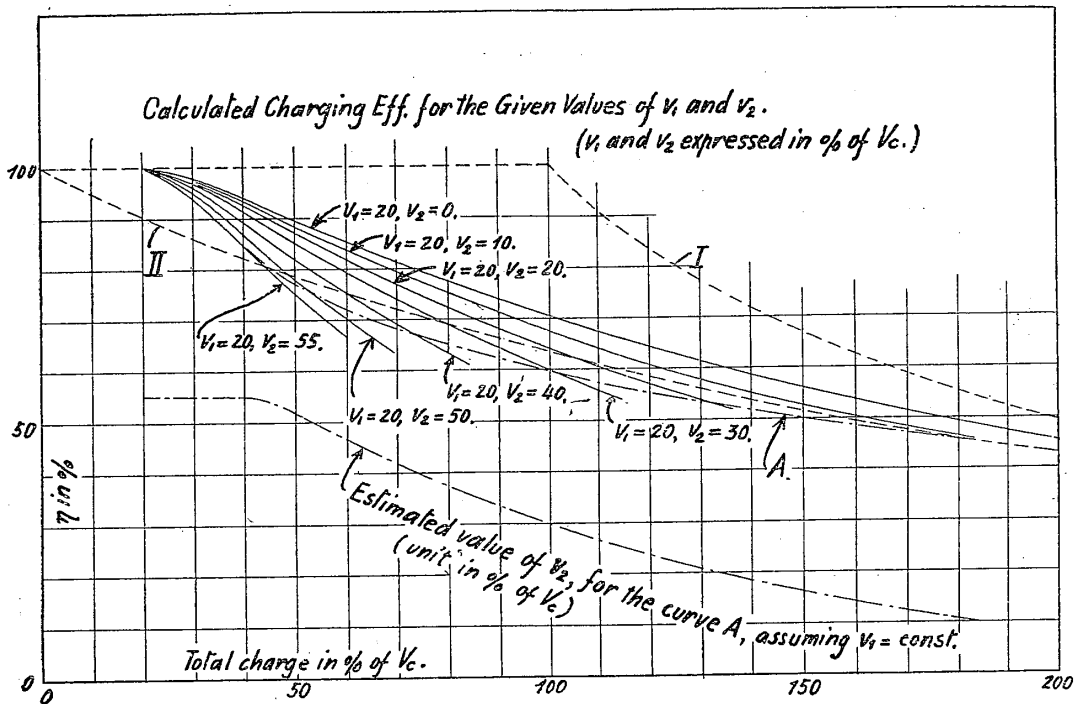 Calculated Charging Eff. for the Given Values of v₁ and v₂.
(v₁ and v₂ expressed in % of Vc.)
100
V₁=20, V₂=0.
V₁=20, V₂=10.
I
II
V₁=20, V₂=20.
V₁=20, V₂=55.
V₁=20, V₂=40.
V₁=20, V₂=50.
V₁=20, V₂=30.
A.
50
η in %
Estimated value of v₂, for the curve A, assuming v₁=const.
(unit in % of Vc)
Total charge in % of Vc.
0
0
50
100
150
200